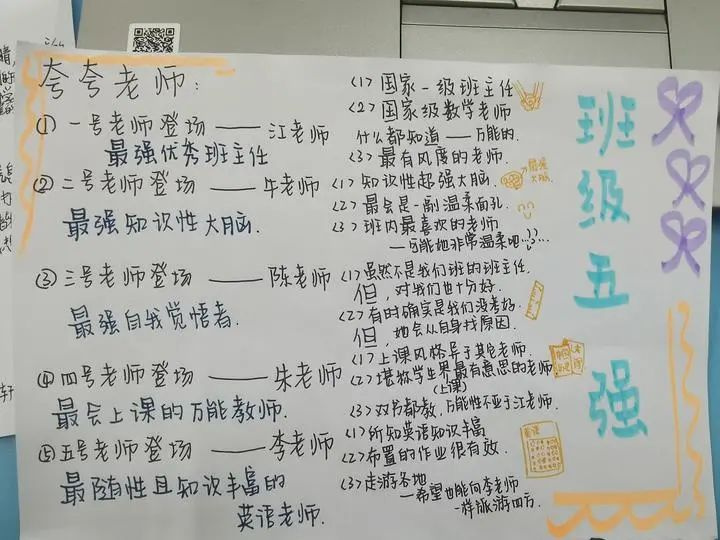 夸夸老师：
① 一号老师登场——江老师
最强优秀班主任
② 二号老师登场——牛老师
最强知识性大脑.
③ 三号老师登场——陈老师
最强自我觉悟者.
④ 四号老师登场——朱老师
最会上课的万能教师.
⑤ 五号老师登场——李老师
最随性且知识丰富的
英语老师.
<1> 国家一级班主任
<2> 国家级数学老师
什么都知道——万能的.
<3> 最有风度的老师.
<1> 知识性超强大脑.
最强大脑.
<2> 最会是一副温柔面孔.
<3> 班内最喜欢的老师
—可能她非常温柔吧…?…
<1> 虽然不是我们班的班主任.
但，对我们也十分好.
<2> 有时确实是我们没考好.
但，她会从自身找原因.
<1> 上课风格异于其它老师.
<2> 堪称学生界最有意思的老师
(上课)
<3> 双书都教，万能性不亚于江老师.
<1> 所知英语知识丰富
<2> 布置的作业很有效.
<3> 走游各地
—希望也能向李老师
一样旅游四方.
班级五强